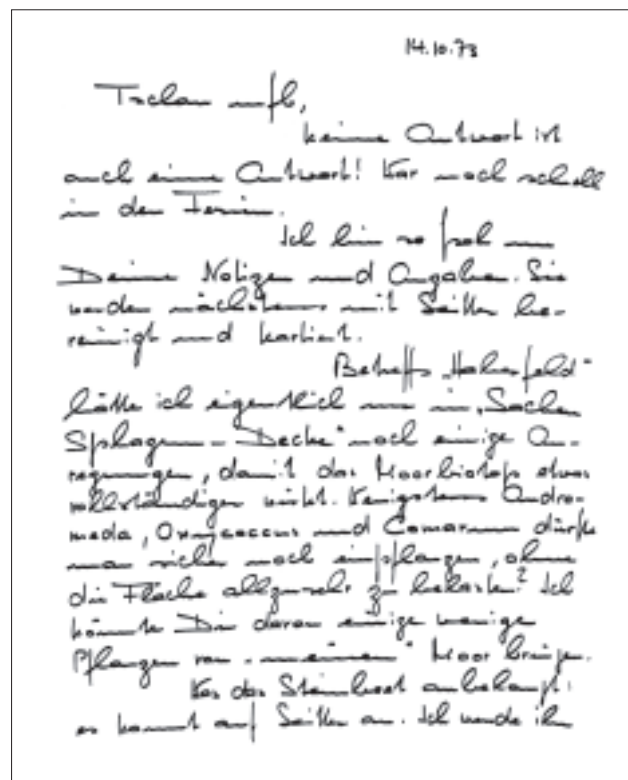 14.10.73
Tschau
keine Antwort ist
auch eine Antwort! War noch schnell
in den Ferien.
Ich bin so froh um
Deine Notizen und Angaben. Sie
werden nächstens mit Seitter be-
reinigt und kartiert.
Betreffs „Haberfeld"
hätte ich eigentlich nur in „Sachen
Sphagnum-Decke" noch einige An-
regungen, damit das Moorbiotop etwas
vollständiger wirkt. Wenigstens Andro-
meda, Oxycoccus und Comarum dürfte
man sicher noch einpflanzen, ohne
die Fläche allzusehr zu belasten? Ich
könnte Dir davon einige wenige
Pflanzen von „meinem" Moor bringen.
Was das Steinbeet anbelangt:
es kommt auf Seitter an. Ich werde ihn